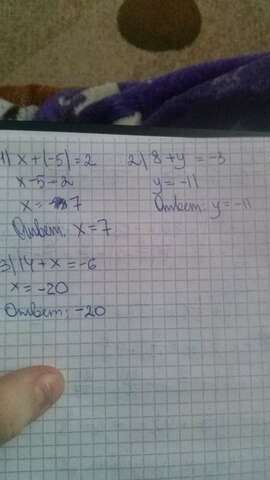 1) x+(-5)=2
x-5=2
x= 7
Ответ: x=7
2) 8+y=-3
y=-11
Ответ: y=-11
3) 14+x=-6
x=-20
Ответ: -20